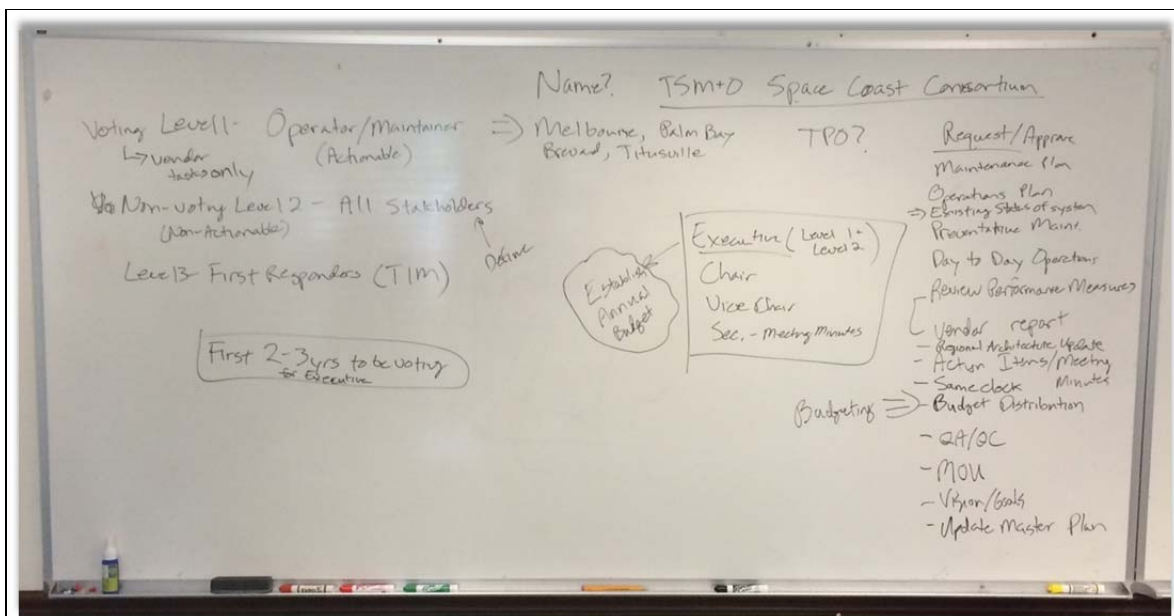 Name? TSM+O Space Coast Consortium
Voting Level 1- Operator/Maintainer => Melbourne, Palm Bay
(Actionable) Brevard, Titusville
↳ vendor
tasks only
TPO?
Non-voting Level 2 - All Stakholders
(Non-Actionable)
Define
Level 3- First Responders (TIM)
First 2-3 yrs to be voting
for Executive
Establish
Annual
Budget
Executive (Level 1+
Level 2)
Chair
Vice Chair
Sec. - Meeting Minutes
Request/Approve
Maintenance Plan
Operations Plan
=> Existing Status of system
Preventative Maint.
Day to Day Operations
Review Performance Measures
Vendor report
- Regional Architecture Update
- Action Items/Meeting
Minutes
- Same clock
Budgeting => - Budget Distribution
- QA/QC
- MOU
- Vision/Goals
- Update Master Plan